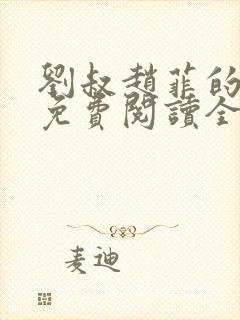 劉叔趙菲的
免費閱讀全
麦迪